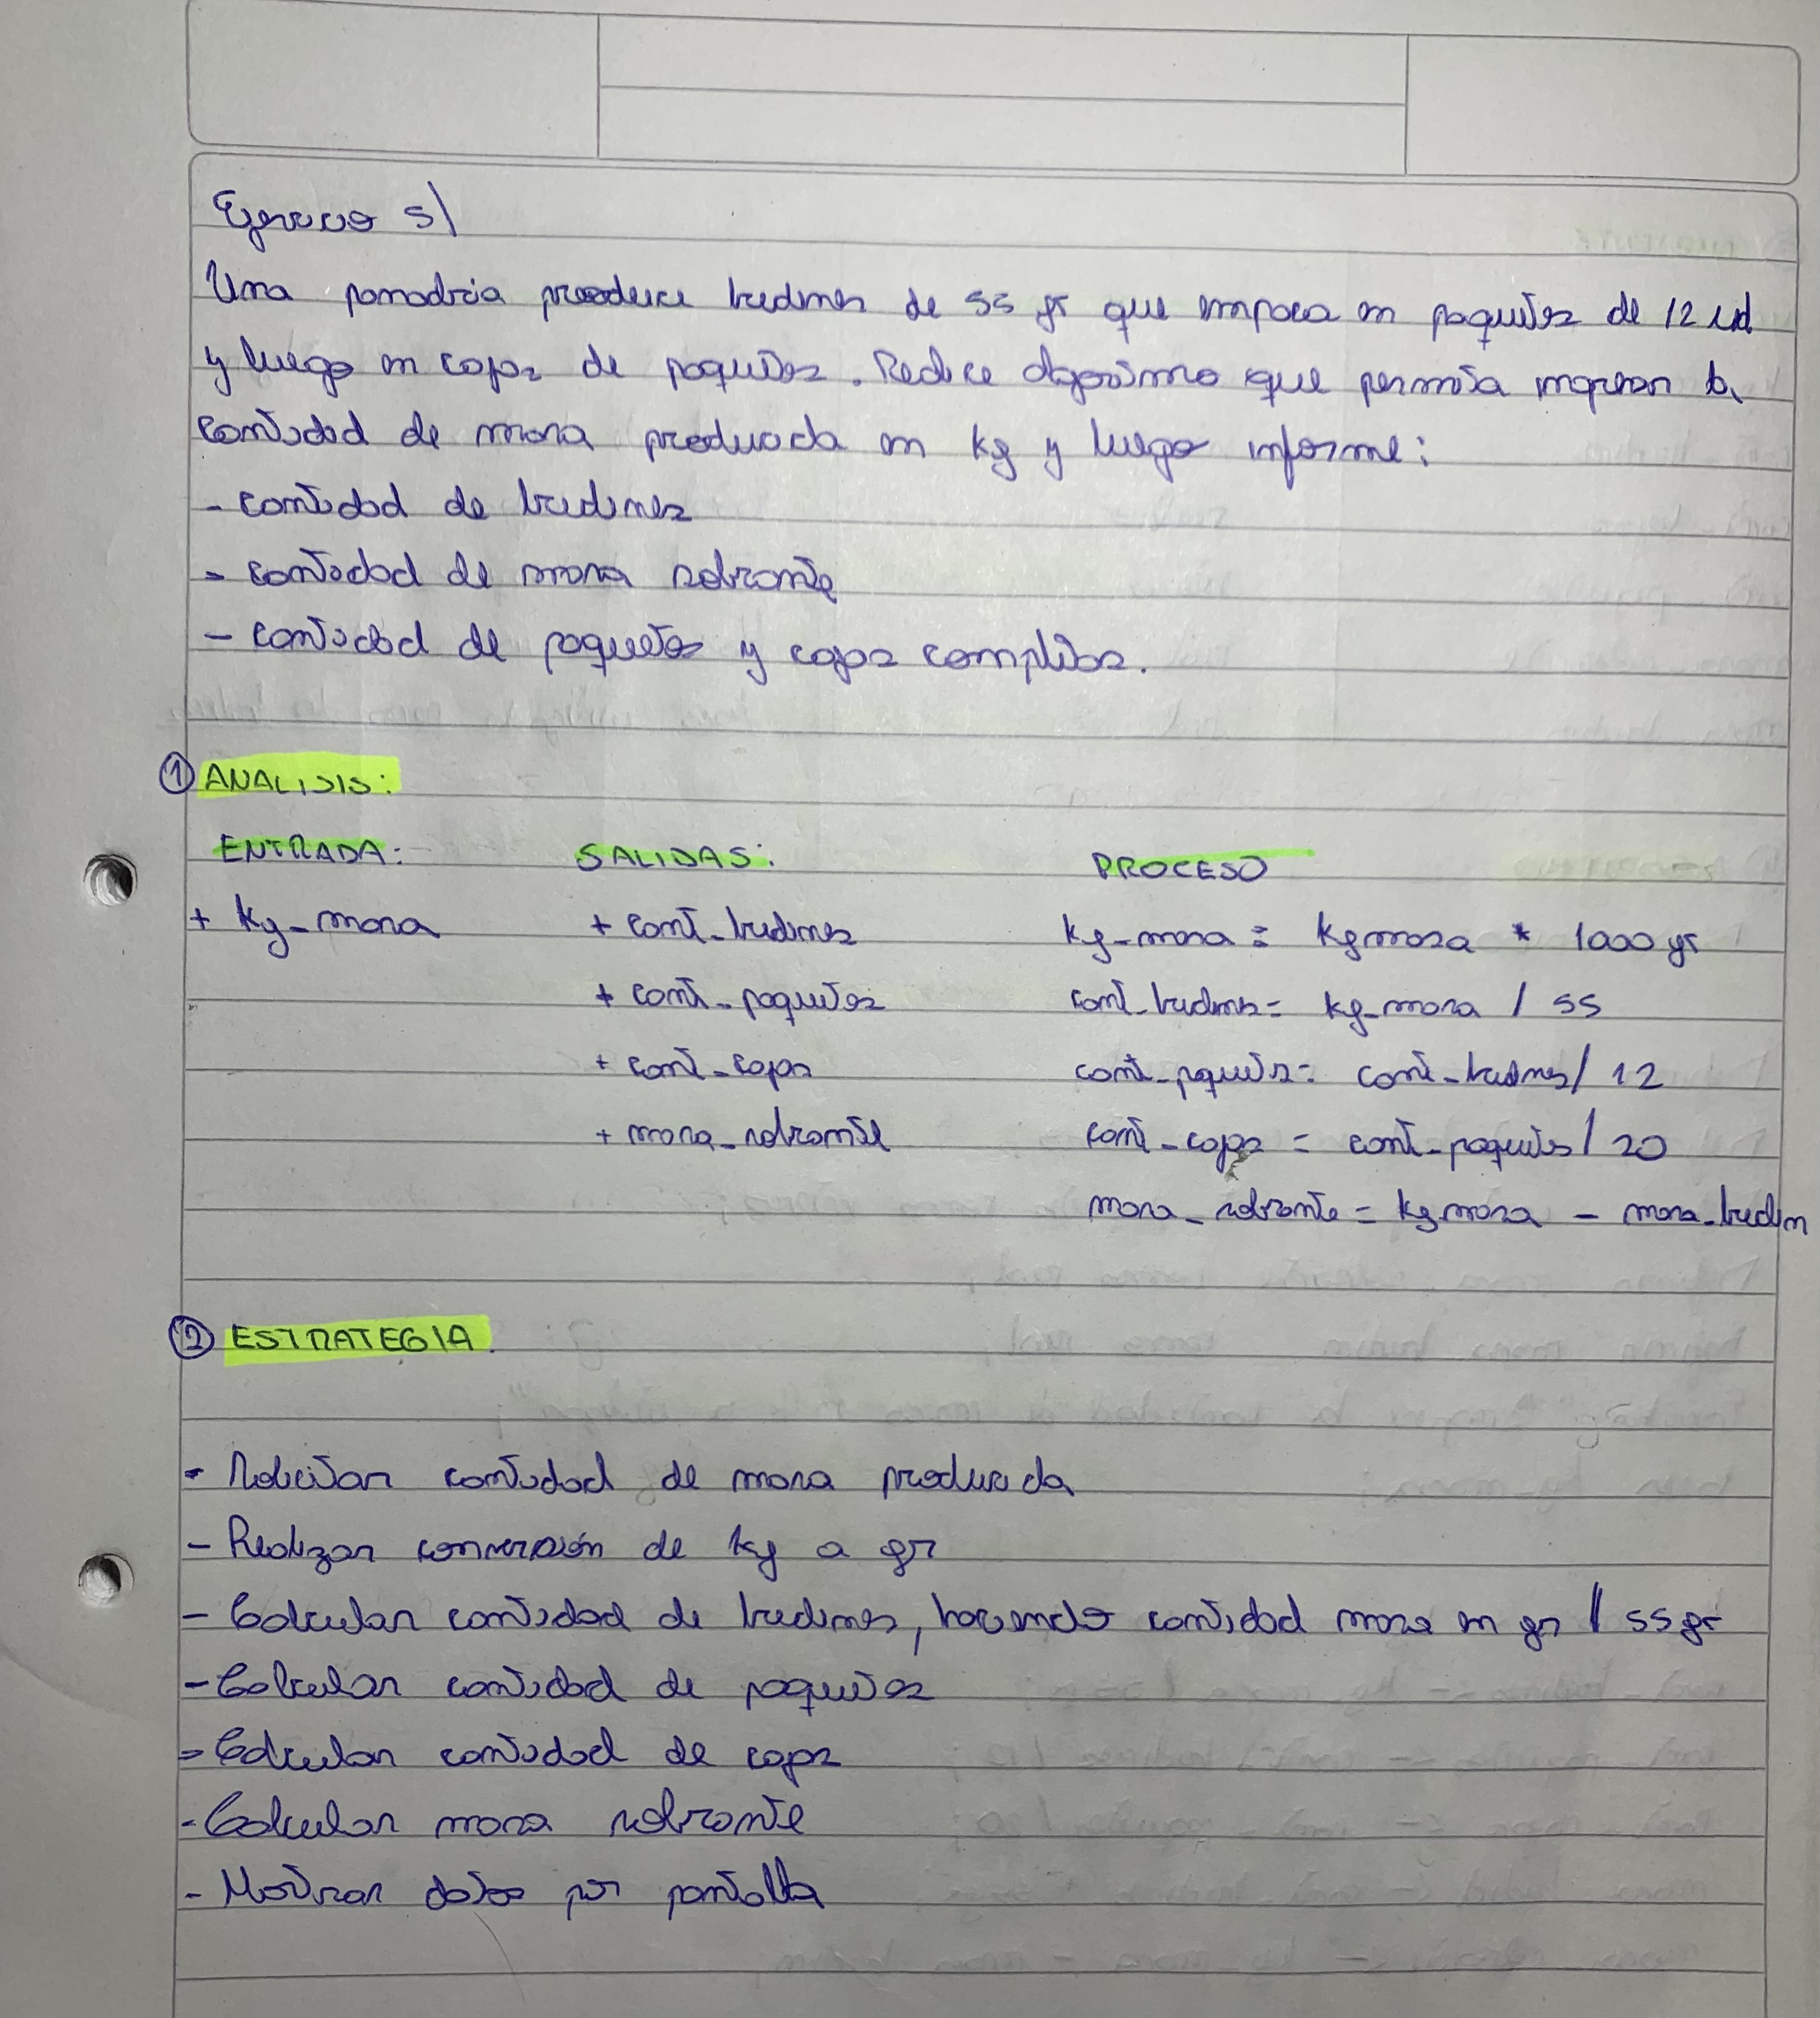 Ejercicio 5\
Una panadería produce budines de 55 gr que empaca en paquetes de 12 ud
y luego en cajas de paquetes. Realice algoritmo que permita ingresar la
cantidad de masa producida en kg y luego informe:
- cantidad de budines
- cantidad de masa sobrante
- cantidad de paquetes y cajas completas.
① ANALISIS:
ENTRADA: SALIDAS: PROCESO
+ kg_masa + cant_budines kg_masa = kgmasa * 1000 gr
+ cant_paquetes cant_budines = kg_masa / 55
+ cant_cajas cant_pquetes = cant_budines / 12
+ masa_sobrante cant_cajas = cant_paquetes / 20
masa_sobrante = kgmasa - masa_budin
② ESTRATEGIA.
- Solicitar cantidad de masa producida
- Realizar conversión de kg a gr
- Calcular cantidad de budines, haciendo cantidad masa en gr / 55 gr
- Calcular cantidad de paquetes
- Calcular cantidad de cajas
- Calcular masa sobrante
- Mostrar datos por pantalla